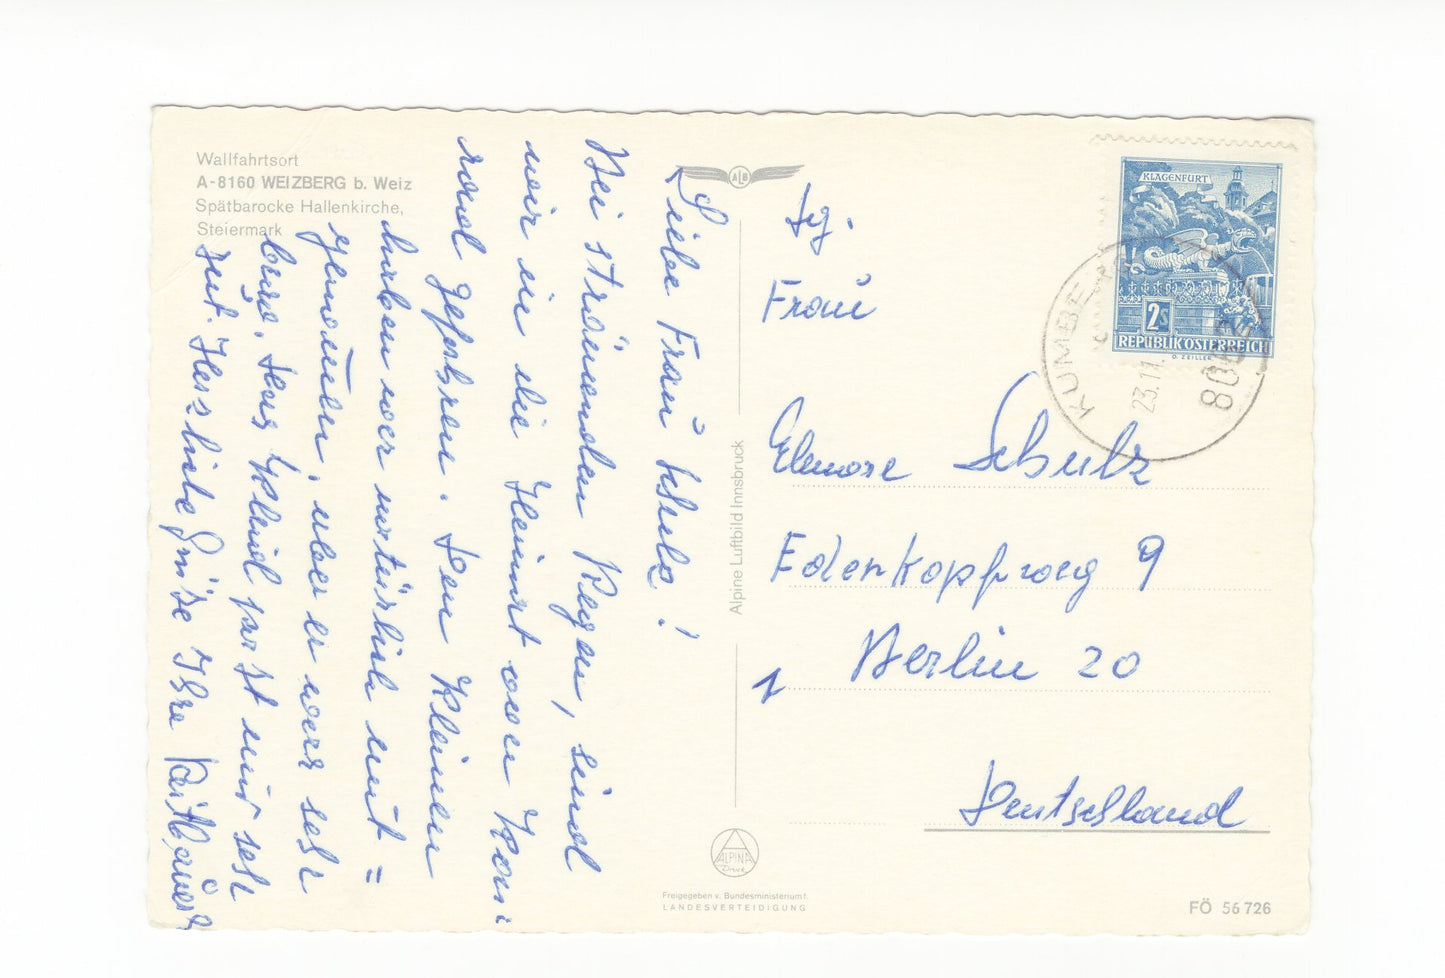 Wallfahrtsort
A-8160 WEIZBERG b. Weiz
Spätbarocke Hallenkirche,
Steiermark
Liebe Frau Schulz!
Bei strömenden Regen, sind
wir in die Heimat von
gefahren. Den Kleinen
haben wir natürlich mit=
genommen, aber er war sehr
brav. Das Kleid paßt mir sehr
gut. Herzliche Grüße Ihre
ALB
Alpine Luftbild Innsbruck
ALPINA
Druck
Freigegeben v. Bundesministerium f.
LANDESVERTEIDIGUNG
KLAGENFURT
2S
REPUBLIK ÖSTERREICH
O. ZEILLER
23.11.
Frau
Elenore Schulz
Edenkopfweg 9
1 Berlin 20
Deutschland
FÖ 56 726